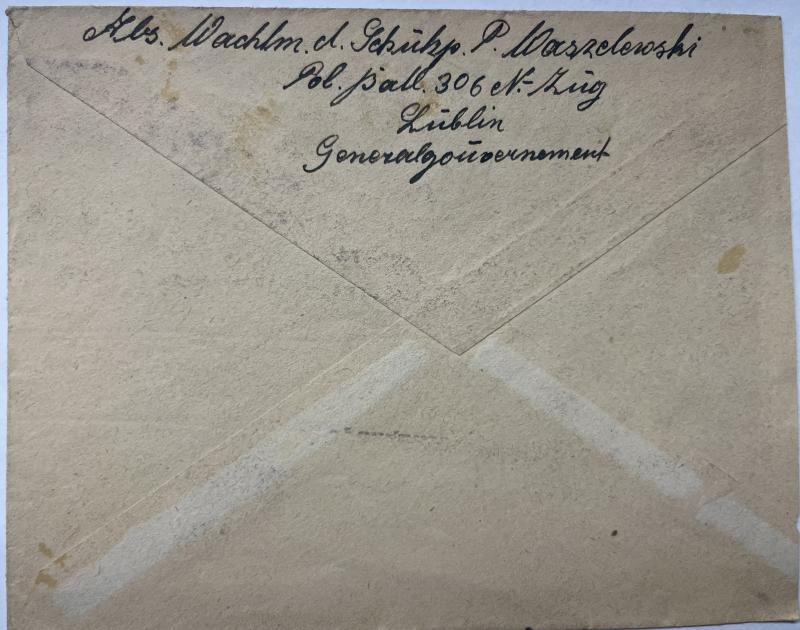 Abs. Wachtm. d. Schutzp. P. Waszelewski
Pol. Batl. 306 N.-Zug
Lublin
Generalgouvernement